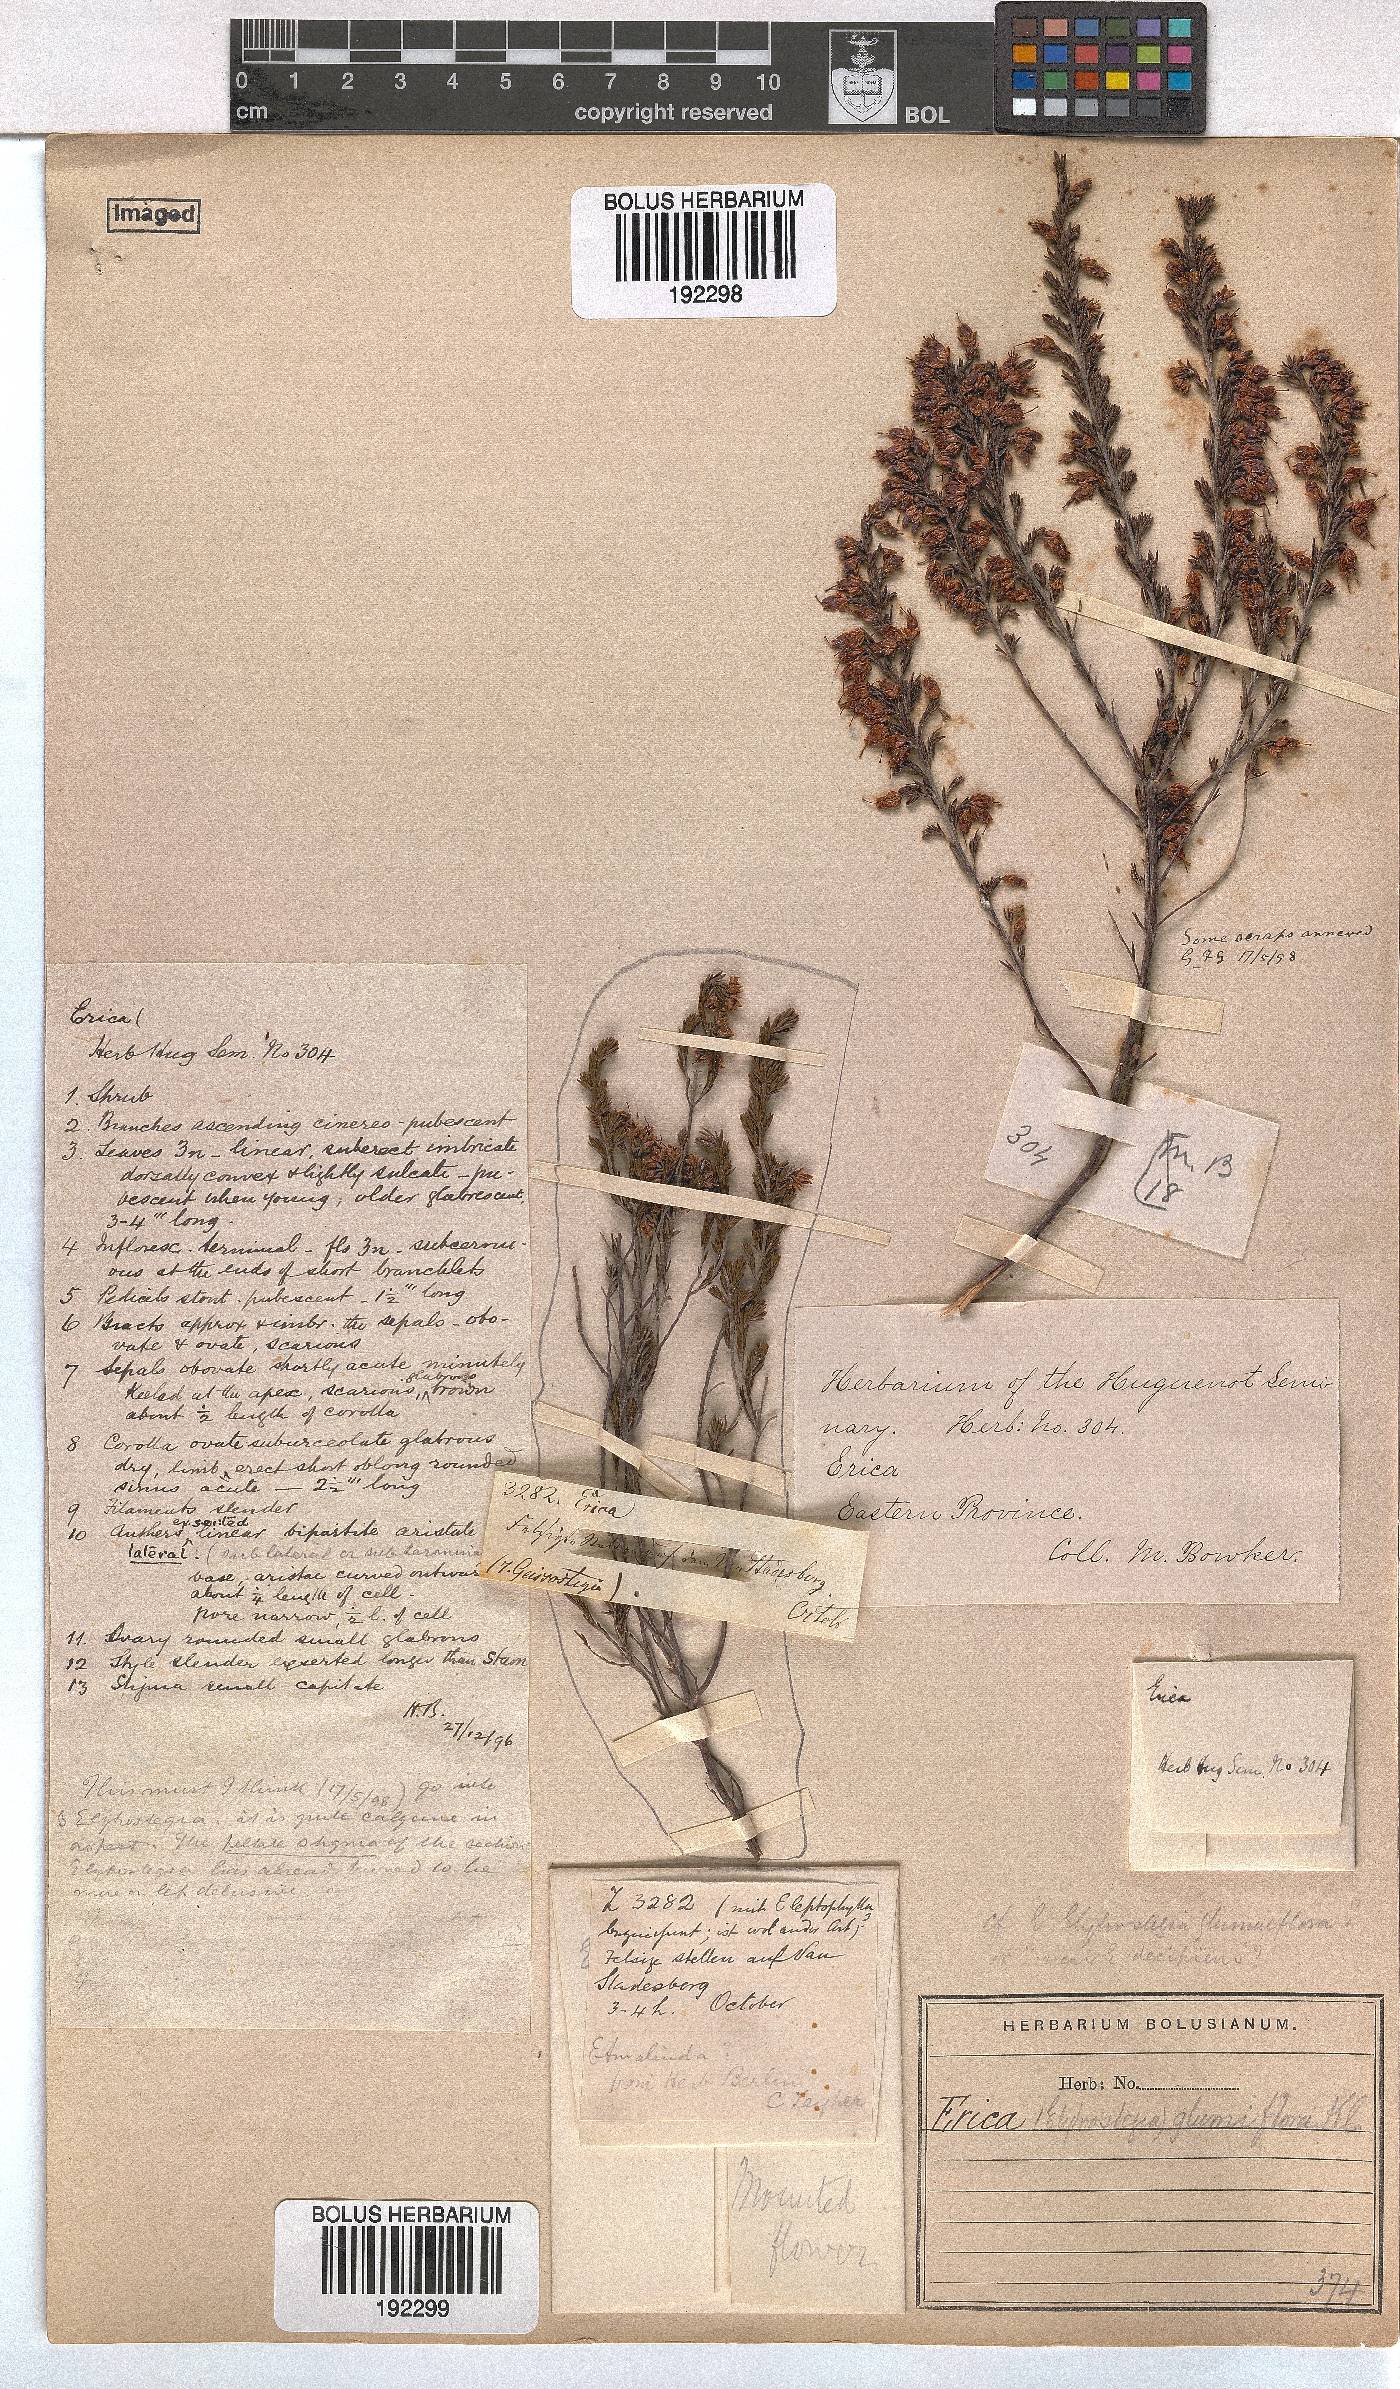 0 1 2 3 4 5 6 7 8 9 10
cm
copyright reserved
BOL
Imaged
BOLUS HERBARIUM
192298
Some scraps annexed
17/5/98
304
18
B
Erica (
Herb Hug Sem. No 304
1. Shrub
2. Branches ascending cinereo-pubescent
3. Leaves 3n - linear, suberect imbricate
dorsally convex & lightly sulcate - pu-
bescent when young, older glabrescent.
3-4''' long.
4 Infloresc. terminal - fls 3n - subcernu-
ous at the ends of short branchlets
5 Pedicels stout pubescent - 1½''' long
6 Bracts approx & imbr. the sepals - obo-
vate & ovate, scarious
7 Sepals obovate shortly acute minutely
keeled at the apex, scarious, glabrous brown
about ½ length of corolla
8 Corolla ovate suburceolate glabrous
dry, limb erect short oblong rounded
sinus acute — 2½''' long
9 Filaments slender
10 Anthers exserted linear bipartite aristate
lateral
base, aristae curved outwar
about ¼ length of cell.
pore narrow, ½ l. of cell
11. Ovary rounded small glabrous
12 Style slender exserted longer than Stam
13 Stigma small capitate
H.B.
27/12/96
This must I think (17/5/98) go into
§ Elytrostegia. it is quite calycine in
aspect. The peltate stigma of the section
Elytrostegia has already turned to be
more or less delusive.
Herbarium of the Huguenot Semi-
nary. Herb: No. 304.
Erica
Eastern Province.
Coll. M. Bowker.
3282. Erica
Octob
Erica
Herb Hug Sem. No 304
Z 3282 (mit E leptophylla
Felsige stellen auf Van
Stadesberg
3-4 h. October
from Herb Berlin
C Zeyher
Mounted
flower
HERBARIUM BOLUSIANUM.
Herb: No.
Erica (Elytrostegia) glumiflora Kl.
374
BOLUS HERBARIUM
192299